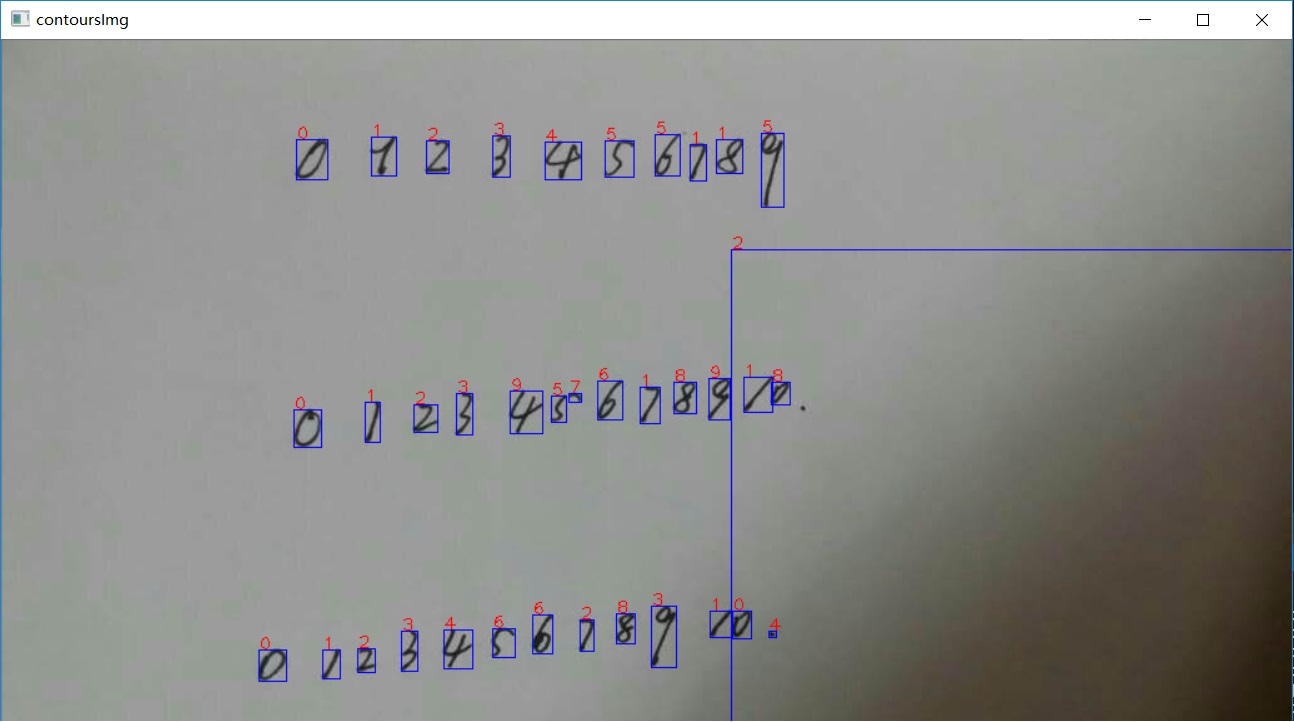 contoursImg
0 1 2 3 4 5 5 1 1 5
0 1 2 3 4 5 6 7 8 9
2
0 1 2 3 9 5 7 6 1 8 9 1 8
0 1 2 3 4 5 6 7 8 9 10 .
0 1 2 3 4 6 6 2 8 3 1 0 4
0 1 2 3 4 5 6 7 8 9 10 .